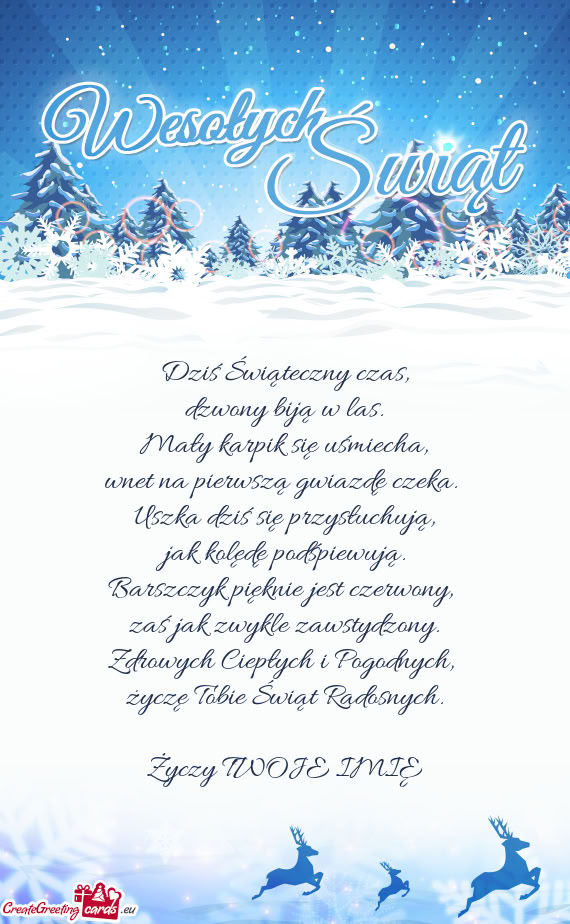 Wesołych Świąt
Dziś Świąteczny czas,
dzwony biją w las.
Mały karpik się uśmiecha,
wnet na pierwszą gwiazdę czeka.
Uszka dziś się przysłuchują,
jak kolędę podśpiewują.
Barszczyk pięknie jest czerwony,
zaś jak zwykle zawstydzony.
Zdrowych Ciepłych i Pogodnych,
życzę Tobie Świąt Radosnych.
Życzy TWOJE IMIĘ
CreateGreeting cards .eu